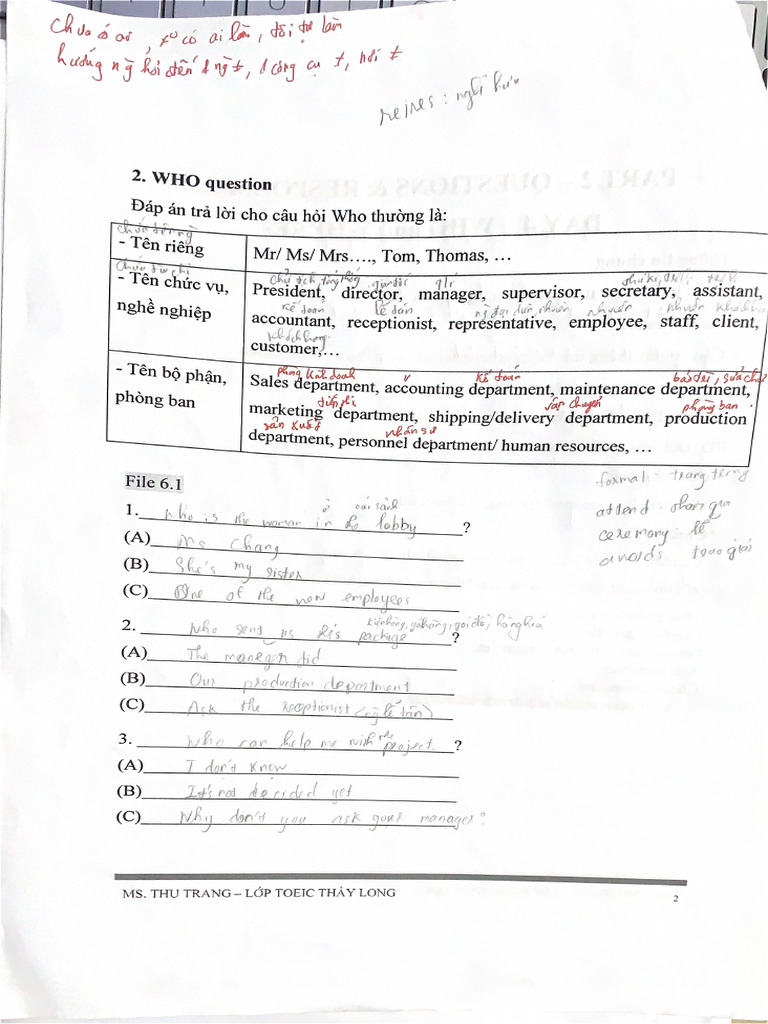 chưa có ai, ko có ai làm, tôi tự làm
hướng ng hỏi đến 1 ng t, 1 công cụ t, nơi t
retires : nghỉ hưu
2. WHO question
Đáp án trả lời cho câu hỏi Who thường là:
- Tên riêng
Mr/ Ms/ Mrs…., Tom, Thomas, …
- Tên chức vụ, nghề nghiệp
chủ tịch, tổng thống giám đốc qlí
President, director, manager, supervisor, secretary, assistant,
kế toán lễ tân ng đại diện nhân
accountant, receptionist, representative, employee, staff, client,
khách hàng
customer,…
- Tên bộ phận, phòng ban
phòng kinh doanh kế toán bảo trì, sửa chữa
Sales department, accounting department, maintenance department,
vận chuyển phòng ban
marketing department, shipping/delivery department, production
sản xuất nhân sự
department, personnel department/ human resources, …
formal : trang trọng
attend : tham gia
ceremony lễ
awards trao giải
File 6.1
ở cái sảnh
1. Who is the woman in the lobby ?
(A) Ms Chang
(B) She's my sister
(C) One of the new employees
kiện hàng, gói hàng, gói đồ, hàng hoá
2. Who send us this package ?
(A) The maneger did
(B) Our production department
(C) Ask the receptionist (ng lễ tân)
3. Who can help me with the project ?
(A) I don't know
(B) It's not decided yet
(C) Why don't you ask your manager?
MS. THU TRANG – LỚP TOEIC THẦY LONG
2